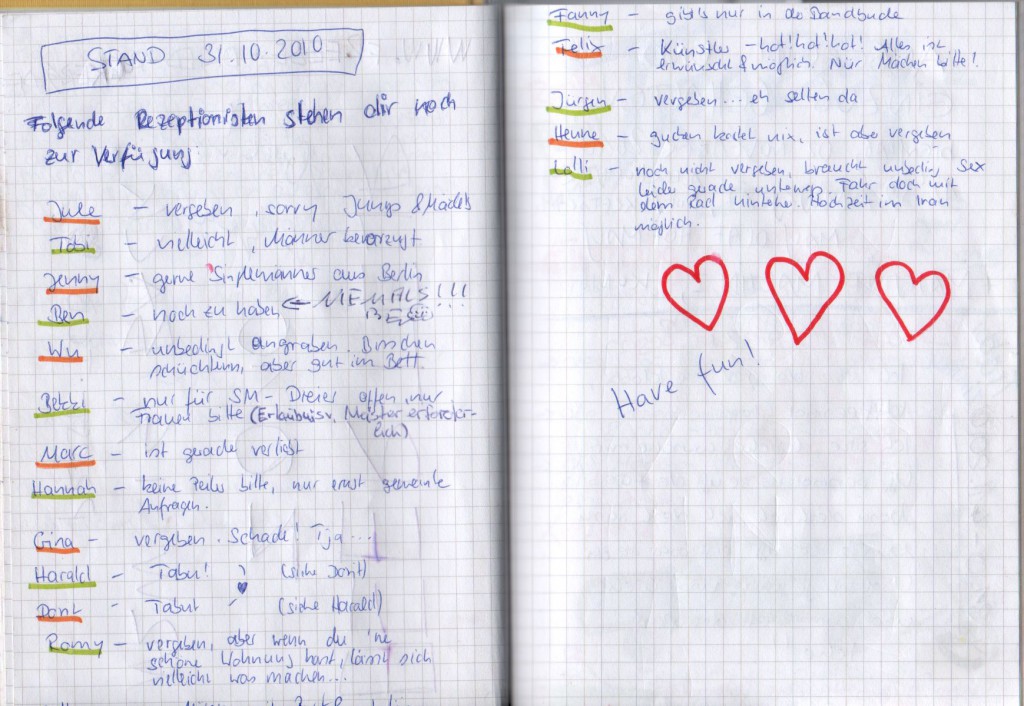 STAND 31.10.2010
Folgende Rezeptionisten stehen dir noch
zur Verfügung:
Jule – vergeben, sorry Jungs & Mädels
Tobi – vielleicht, Männer bevorzugt
Jenny – gerne Singlemänner aus Berlin
Ben – noch zu haben ← NIEMALS!!!
Wu – unbedingt angraben. Bisschen
schüchtern, aber gut im Bett.
Betti – nur für SM-Dreier offen, nur
Frauen bitte (Erlaubnis v. Meister erforder-
lich)
Marc – ist gerade verliebt
Hannah – keine Feiles bitte, nur ernst gemeinte
Anfragen.
Gina – vergeben. Schade! Tja...
Harald – Tabu! (siehe Dont)
Dont – Tabu! (siehe Harald)
Romy – vergeben, aber wenn du 'ne
schöne Wohnung hast, lässt sich
vielleicht was machen...
Fanny – gibt's nur in der Bandbude
Felix – Künstler – hot! hot! hot! Alles ist
erwünscht & möglich. Nur Machen bitte!
Jürgen – vergeben... eh selten da
Henne – gucken kostet nix, ist aber vergeben
Lolli – noch nicht vergeben, braucht unbeding Sex
leider gerade unterwegs. Fahr doch mit
dem Rad hinterher. Hochzeit im Iran
möglich.
Have fun!